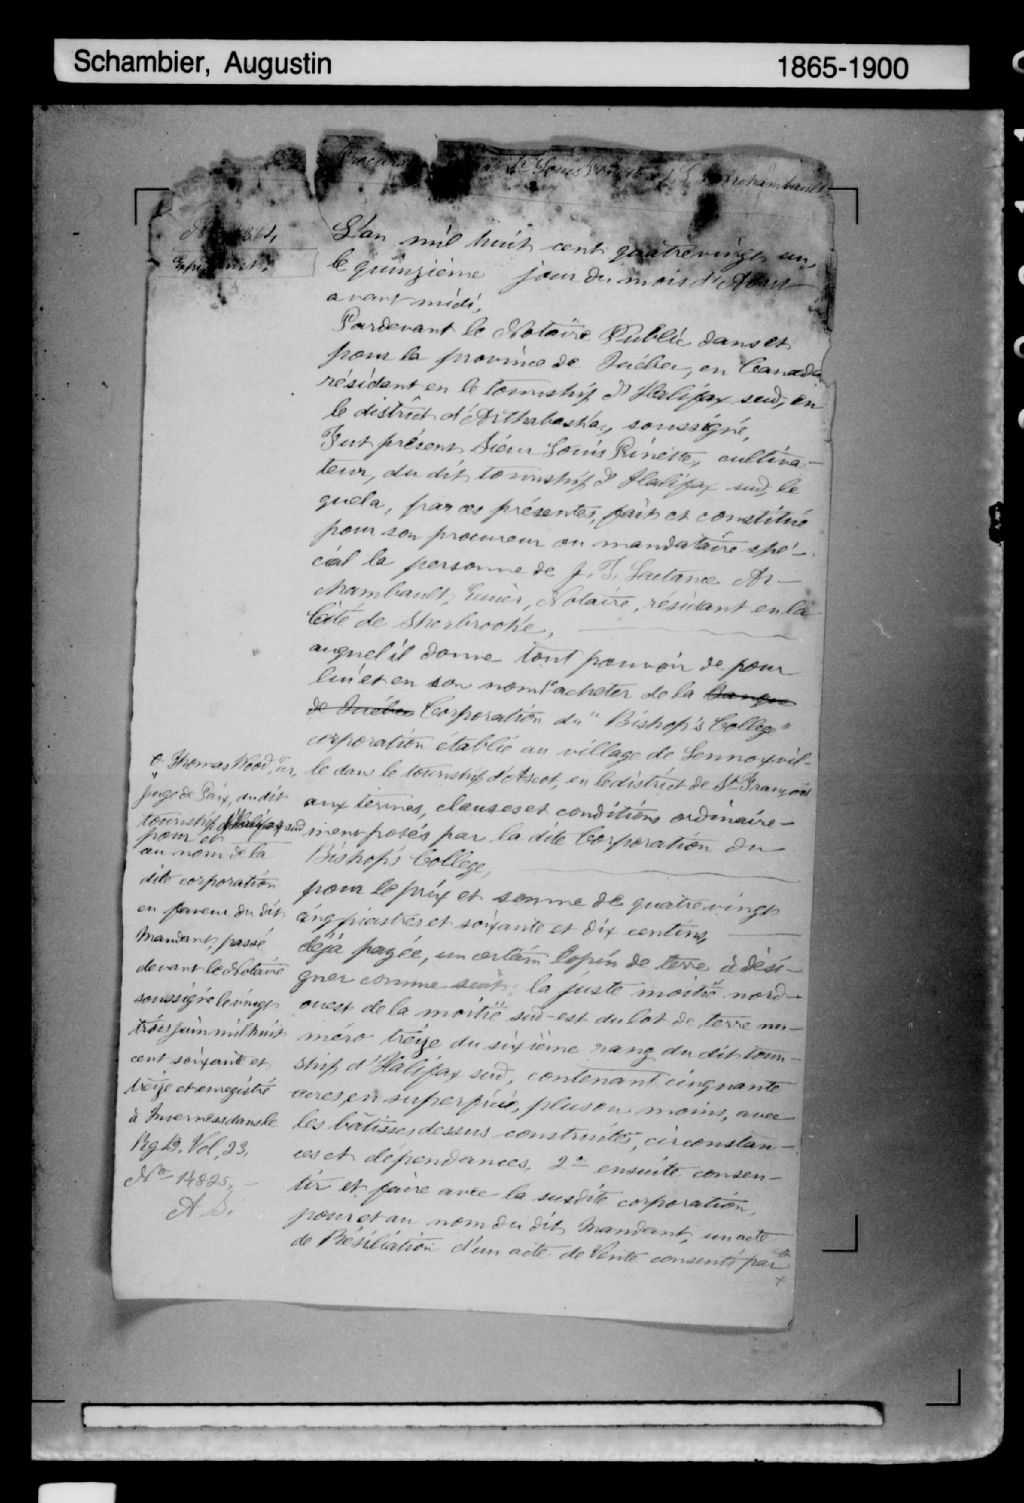 Schambier, Augustin
1865-1900
Louis Archambault
L'an mil huit cent quatrevingt un,
le quinzième jour du mois d'Aout
avant midi,
Pardevant le Notaire Public dans et
pour la province de Québec, en Canada
résidant en le township d'Halifax sud, en
le district d'Arthabaska, soussigné,
Fut présent Sieur Louis Pinette, cultiva-
teur, du dit township d'Halifax sud, le
quel a, par ces présentes, fait et constitué
pour son procureur ou mandataire spé-
cial la personne de J. T. Lactance Ar-
chambault, Ecuier, Notaire, résidant en la
Cité de Sherbrooke,
auquel il donne tout pouvoir de pour
lui et en son nom 1° acheter de la Banque
de Québec Corporation du "Bishop's College"
corporation établie au village de Lennoxvil-
le dans le township d'Ascot, en le district de St François
aux termes, clauses et conditions ordinaire-
ment posés par la dite Corporation du
Bishop's College,
pour le prix et somme de quatrevingt
cinq piastres et soixante et dix centins,
déjà payée, un certain lopin de terre à dési-
gner comme suit: la juste moitié nord-
ouest de la moitié sud-est du lot de terre nu-
méro treize du sixième rang du dit town-
ship d'Halifax sud, contenant cinquante
acres en superficie, plus ou moins, avec
les bâtisses dessus construites, circonstan-
ces et dépendances. 2° ensuite consen-
tir et faire avec la susdite corporation,
pour et au nom du dit Mandant, un acte
de Résiliation d'un acte de Vente consenti par
Thomas Wood, Ecr,
Juge de Paix, du dit
township d'Halifax sud
pour et
au nom de la
dite corporation
en faveur du dit
Mandant, passé
devant le Notaire
soussigné le vingt
trois Juin mil huit
cent soixante et
treize et enregistré
à Inverness dans le
Reg B. Vol, 23,
No 14825,
A. S.